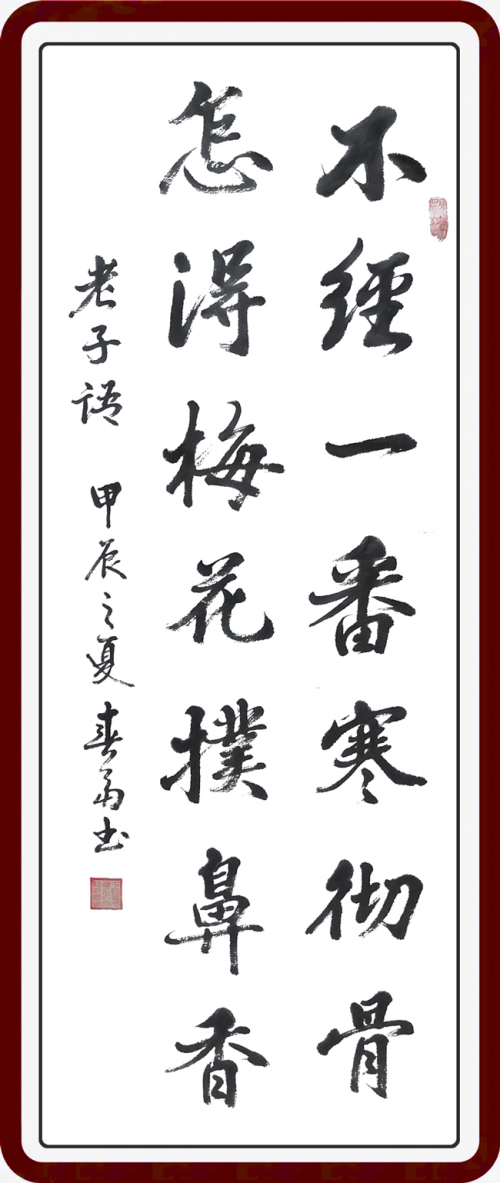 不經一番寒彻骨
怎得梅花撲鼻香
老子語 甲辰之夏 春苐书